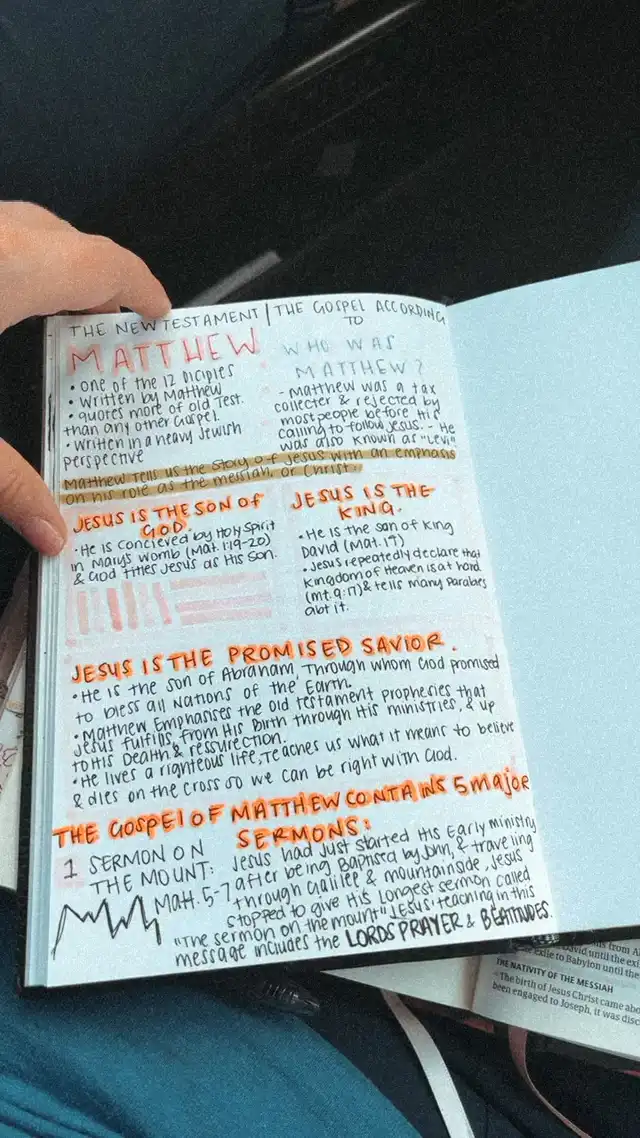 THE NEW TESTAMENT | THE GOSPEL ACCORDING
TO
MATTHEW
• one of the 12 Diciples
• written by Matthew
• quotes more of old Test.
than any other Gospel.
• written in a heavy Jewish
perspective
WHO WAS
MATTHEW?
- Matthew was a tax
collecter & rejected by
most people before His
calling to follow Jesus. - He
was also known as "Levi"
Matthew Tells us the story of Jesus with an emphasis
on his role as the messiah, or Christ.
JESUS IS THE SON OF
GOD.
• He is concieved by Holy Spirit
in Mary's womb (Mat. 1:19-20)
& God titles Jesus as His son.
JESUS IS THE
KING.
• He is the son of King
David (Mat. 1?)
• Jesus repeatedly declare that
Kingdom of Heaven is at hand
(mt. 9:17) & tells many parables
abt it.
JESUS IS THE PROMISED SAVIOR.
• He is the son of Abraham, Through whom God promised
to bless all Nations of the Earth.
• Matthew Emphasises the old testament prophecies that
Jesus fulfills from His Birth through His ministries, & up
to His Death & ressurection.
• He lives a righteous life, Teaches us what it means to believe
& dies on the cross so we can be right with God.
THE GOSPEL OF MATTHEW CONTAINS 5 major
SERMONS:
1 SERMON ON
THE MOUNT:
Matt. 5-7
Jesus had just started His Early ministry
after being Baptised by John, & traveling
through Galilee & mountainside, Jesus
stopped to give His Longest sermon called
"The sermon on the mount" Jesus' teaching in this
message includes the LORDS PRAYER & BEATITUDES.
David until the exi
exile to Babylon until the
THE NATIVITY OF THE MESSIAH
The birth of Jesus Christ came abo
been engaged to Joseph, it was disc